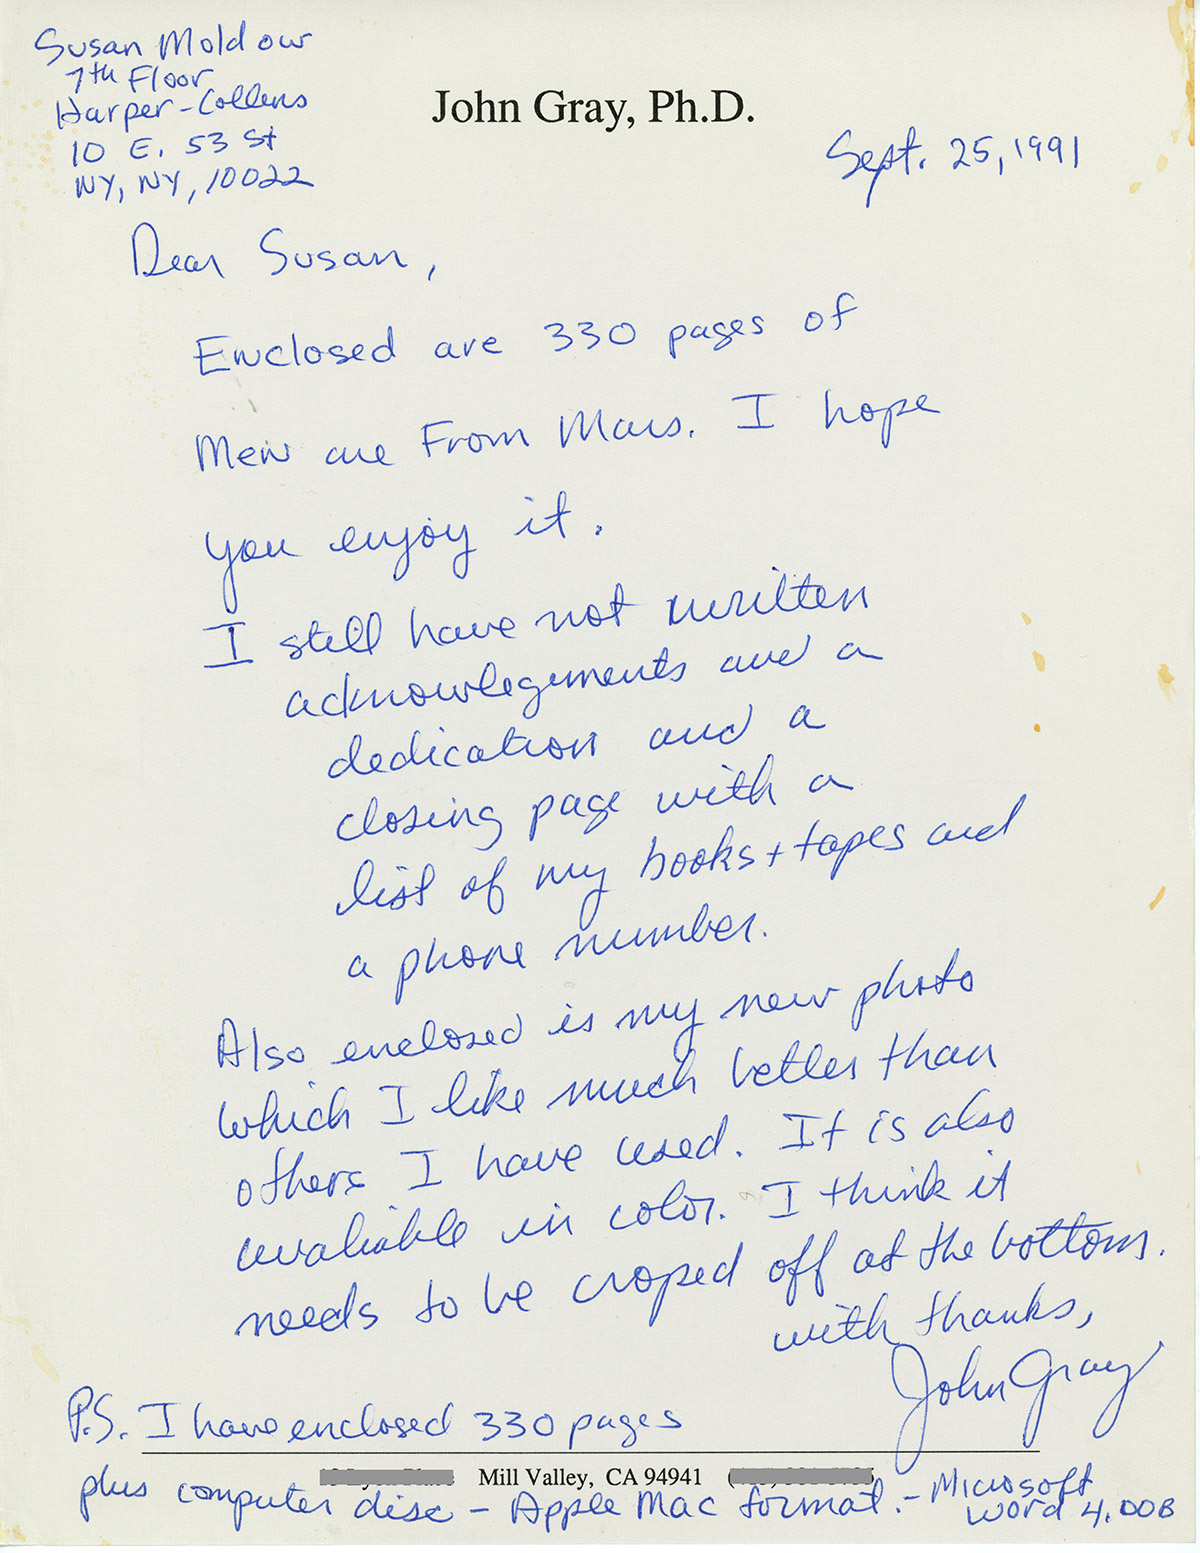 Susan Moldow
7th Floor
Harper-Collens
10 E. 53 St
NY, NY, 10022
John Gray, Ph.D.
Sept. 25, 1991
Dear Susan,
Enclosed are 330 pages of
Men are From Mars. I hope
you enjoy it.
I still have not written
acknowlegements and a
dedication and a
closing page with a
list of my books + tapes and
a phone number.
Also enclosed is my new photo
which I like much better than
others I have used. It is also
avaliable in color. I think it
needs to be croped off at the bottom.
with thanks,
John Gray
P.S. I have enclosed 330 pages
Mill Valley, CA 94941
plus computer disc - Apple Mac format. - Microsoft
Word 4.00B